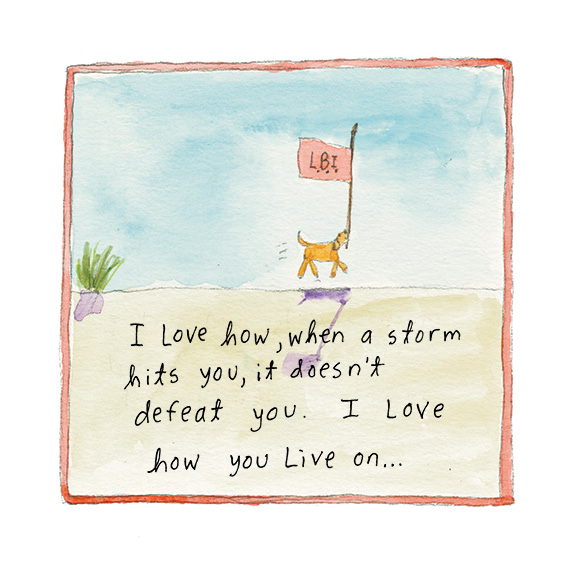 L.B.I.
I Love how, when a storm
hits you, it doesn't
defeat you. I Love
how you Live on...